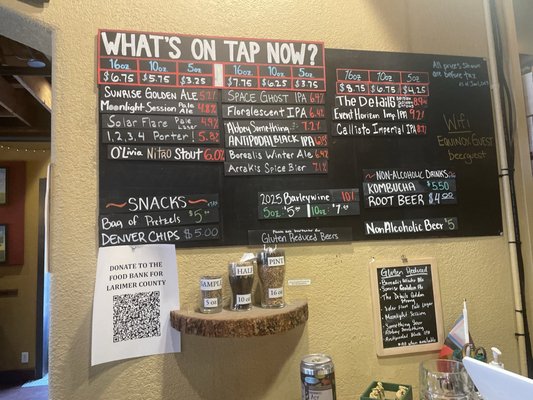 WHAT'S ON TAP NOW?
16oz 10oz 5oz
$6.75 $5.75 $3.25
Sunrise Golden Ale 5%
Moonlight Session Pale Ale 4.8%
Solar Flare Pale Lager 4.9%
1,2,3,4 Porter! 5.8%
O'Livia Nitro Stout 6.0%
16oz 10oz 5oz
$7.75 $6.25 $3.75
Space Ghost IPA
Floralescent IPA
Abbey Something
Antipodal Black IPA
Borealis Winter Ale
Arrakis Spice Ale
16oz 10oz 5oz
$8.75 $6.75 $4.25
The Details
Event Horizon Imp IPA
Callisto Imperial IPA
All prices shown are before tax
WiFi
Equinox Guest
Beerguest
~ SNACKS ~
Bag of Pretzels $5
Denver Chips $5.00
2025 Barleywine 10%
5oz $5 10oz $7
Gluten Reduced Beers
~ Non-Alcoholic Drinks ~
KOMBUCHA $5.50
ROOT BEER $4.00
Non Alcoholic Beer $5
DONATE TO THE
FOOD BANK FOR
LARIMER COUNTY
SAMPLE
5 oz
HALF
10 oz
PINT
16 oz
Gluten Reduced
Borealis Winter Ale
Sunrise Golden Ale
The Details
Solar Flare Pale Lager
Moonlight Session
Abbey Something
Antipodal Black IPA